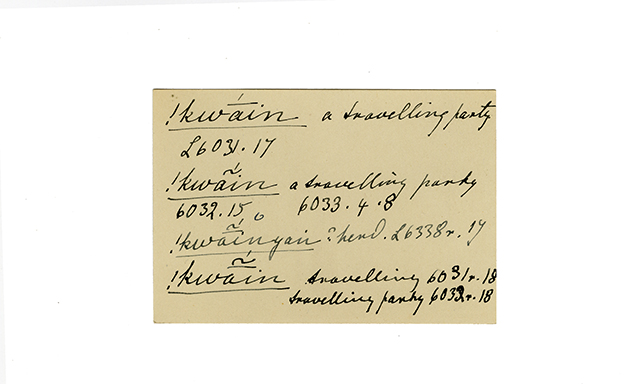 !kwáin a travelling party
L6031.17
!kwã́in a travelling party
6032.15 6033.4.8
!kwã́inyan ? herd. L6338r.17
!kwã́in travelling 6031r.18
travelling party 6032r.18